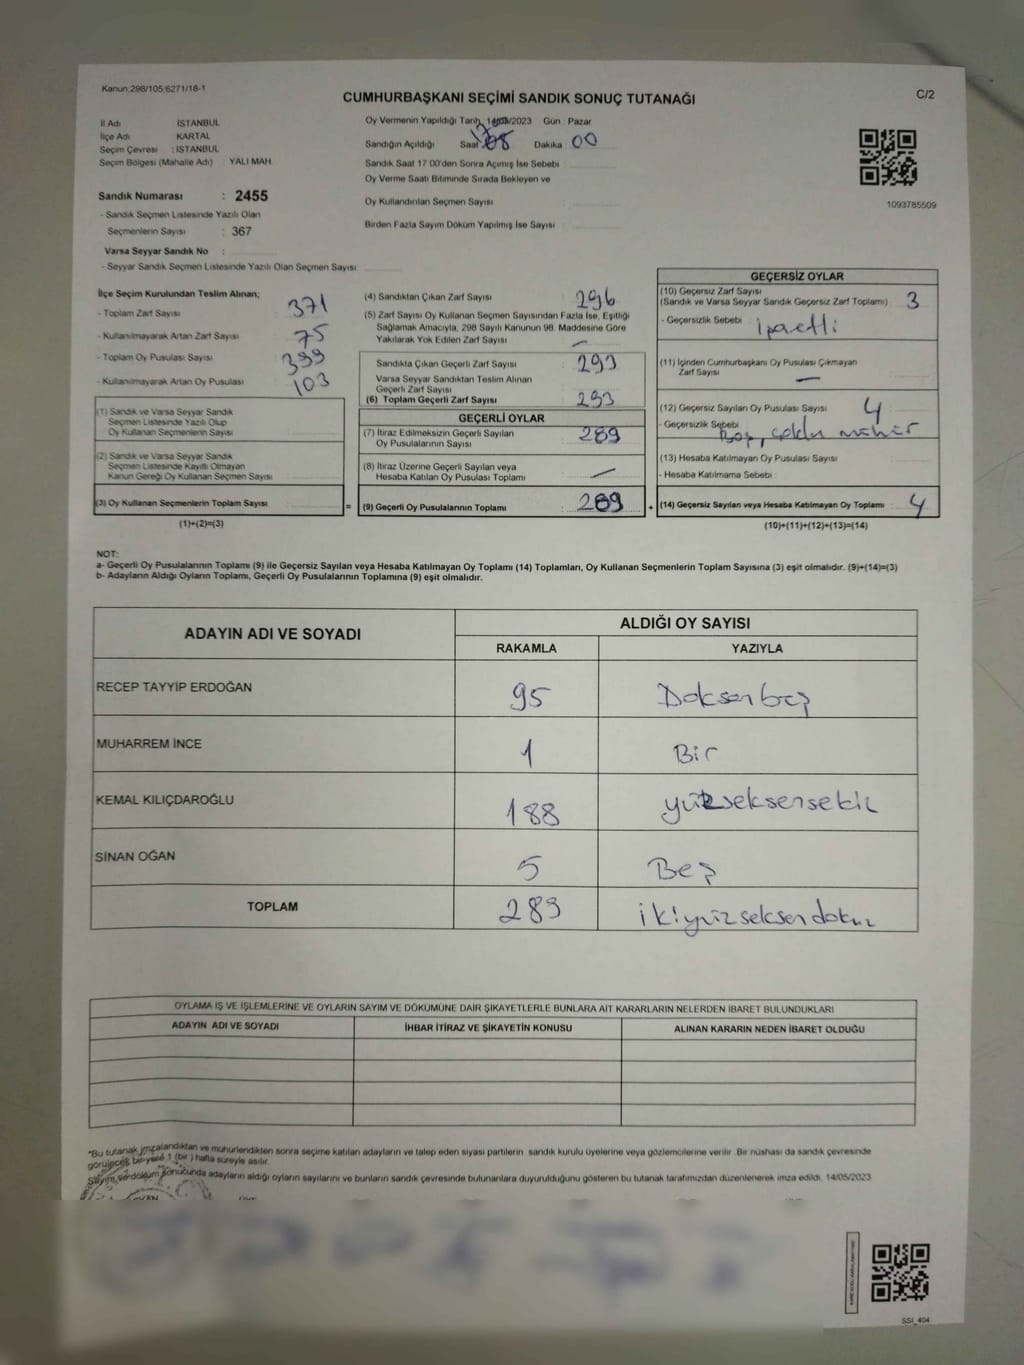 Kanun:298/105;6271/18-1
C/2
CUMHURBAŞKANI SEÇİMİ SANDIK SONUÇ TUTANAĞI
İl Adı İSTANBUL
İlçe Adı KARTAL
Seçim Çevresi : İSTANBUL
Seçim Bölgesi (Mahalle Adı) YALI MAH.
Sandık Numarası : 2455
- Sandık Seçmen Listesinde Yazılı Olan
Seçmenlerin Sayısı : 367
Varsa Seyyar Sandık No :
- Seyyar Sandık Seçmen Listesinde Yazılı Olan Seçmen Sayısı
Oy Vermenin Yapıldığı Tarih, 14/05/2023 Gün : Pazar
Sandığın Açıldığı Saat Dakika 00
Sandık Saat 17:00'den Sonra Açımış İse Sebebi
Oy Verme Saati Bitiminde Sırada Bekleyen ve
Oy Kullandırılan Seçmen Sayısı :
Birden Fazla Sayım Döküm Yapılmış İse Sayısı :
1093785509
İlçe Seçim Kurulundan Teslim Alınan;
- Toplam Zarf Sayısı : 371
- Kullanılmayarak Artan Zarf Sayısı : 75
- Toplam Oy Pusulası Sayısı : 399
- Kullanılmayarak Artan Oy Pusulası : 103
(1) Sandık ve Varsa Seyyar Sandık
Seçmen Listesinde Yazılı Olup
Oy Kullanan Seçmenlerin Sayısı :
(2) Sandık ve Varsa Seyyar Sandık
Seçmen Listesinde Kayıtlı Olmayan
Kanun Gereği Oy Kullanan Seçmen Sayısı :
(3) Oy Kullanan Seçmenlerin Toplam Sayısı :
(1)+(2)=(3)
(4) Sandıktan Çıkan Zarf Sayısı : 296
(5) Zarf Sayısı Oy Kullanan Seçmen Sayısından Fazla İse, Eşitliği
Sağlamak Amacıyla, 298 Sayılı Kanunun 98. Maddesine Göre
Yakılarak Yok Edilen Zarf Sayısı : —
Sandıkta Çıkan Geçerli Zarf Sayısı : 293
Varsa Seyyar Sandıktan Teslim Alınan
Geçerli Zarf Sayısı
(6) Toplam Geçerli Zarf Sayısı : 293
GEÇERLİ OYLAR
(7) İtiraz Edilmeksizin Geçerli Sayılan
Oy Pusulasının Sayısı : 289
(8) İtiraz Üzerine Geçerli Sayılan veya
Hesaba Katılan Oy Pusulası Toplamı : —
= (9) Geçerli Oy Pusulalarının Toplamı : 289
GEÇERSİZ OYLAR
(10) Geçersiz Zarf Sayısı
(Sandık ve Varsa Seyyar Sandık Geçersiz Zarf Toplamı) : 3
- Geçersizlik Sebebi : İşaretli
(11) İçinden Cumhurbaşkanı Oy Pusulası Çıkmayan
Zarf Sayısı : —
(12) Geçersiz Sayılan Oy Pusulası Sayısı : 4
- Geçersizlik Sebebi : Boş,
(13) Hesaba Katılmayan Oy Pusulası Sayısı :
- Hesaba Katılmama Sebebi :
+ (14) Geçersiz Sayılan veya Hesaba Katılmayan Oy Toplamı : 4
(10)+(11)+(12)+(13)=(14)
NOT:
a- Geçerli Oy Pusulalarının Toplamı (9) ile Geçersiz Sayılan veya Hesaba Katılmayan Oy Toplamı (14) Toplamları, Oy Kullanan Seçmenlerin Toplam Sayısına (3) eşit olmalıdır. (9)+(14)=(3)
b- Adayların Aldığı Oyların Toplamı, Geçerli Oy Pusulalarının Toplamına (9) eşit olmalıdır.
ADAYIN ADI VE SOYADI
ALDIĞI OY SAYISI
RAKAMLA YAZIYLA
RECEP TAYYİP ERDOĞAN 95 Doksanbeş
MUHARREM İNCE 1 Bir
KEMAL KILIÇDAROĞLU 188 yüzseksensekiz
SİNAN OĞAN 5 Beş
TOPLAM 289 ikiyüzseksendokuz
OYLAMA İŞ VE İŞLEMLERİNE VE OYLARIN SAYIM VE DÖKÜMÜNE DAİR ŞİKAYETLERLE BUNLARA AİT KARARLARIN NELERDEN İBARET BULUNDUKLARI
ADAYIN ADI VE SOYADI İHBAR İTİRAZ VE ŞİKAYETİN KONUSU ALINAN KARARIN NEDEN İBARET OLDUĞU
*Bu tutanak imzalandıktan ve mühürlendikten sonra seçime katılan adayların ve talep eden siyasi partilerin sandık kurulu üyelerine veya gözlemcilerine verilir. Bir nüshası da sandık çevresinde
görülecek bir yere 1 (bir) hafta süreyle asılır.
Sayım ve döküm sonucunda adayların aldığı oyların sayılarını ve bunların sandık çevresinde bulunanlara duyurulduğunu gösteren bu tutanak tarafımızdan düzenlenerek imza edildi. 14/05/2023
SSI_404